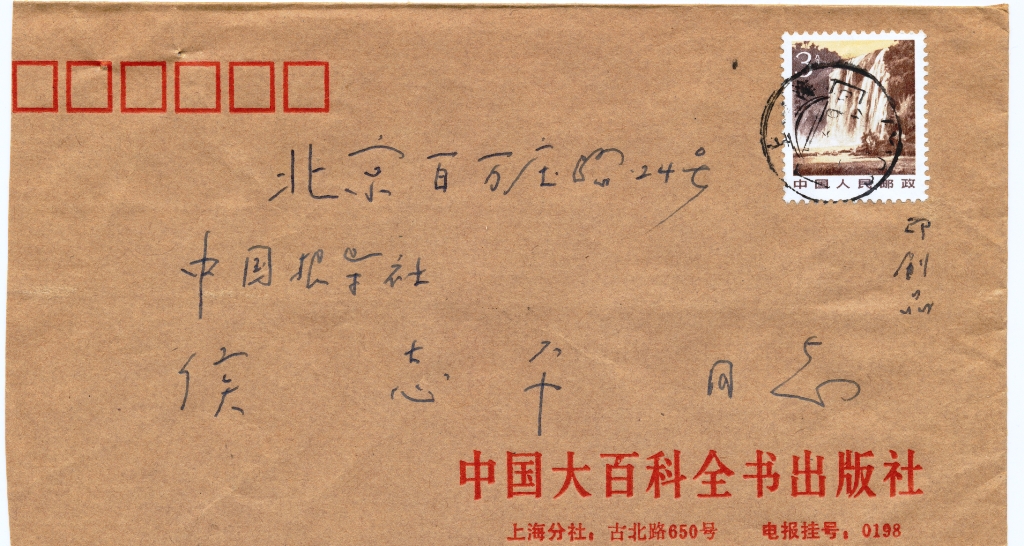 3分
中国人民邮政
北京百万庄路24号
印刷品
中国报导社
侯志平同志
中国大百科全书出版社
上海分社：古北路650号 电报挂号：0198